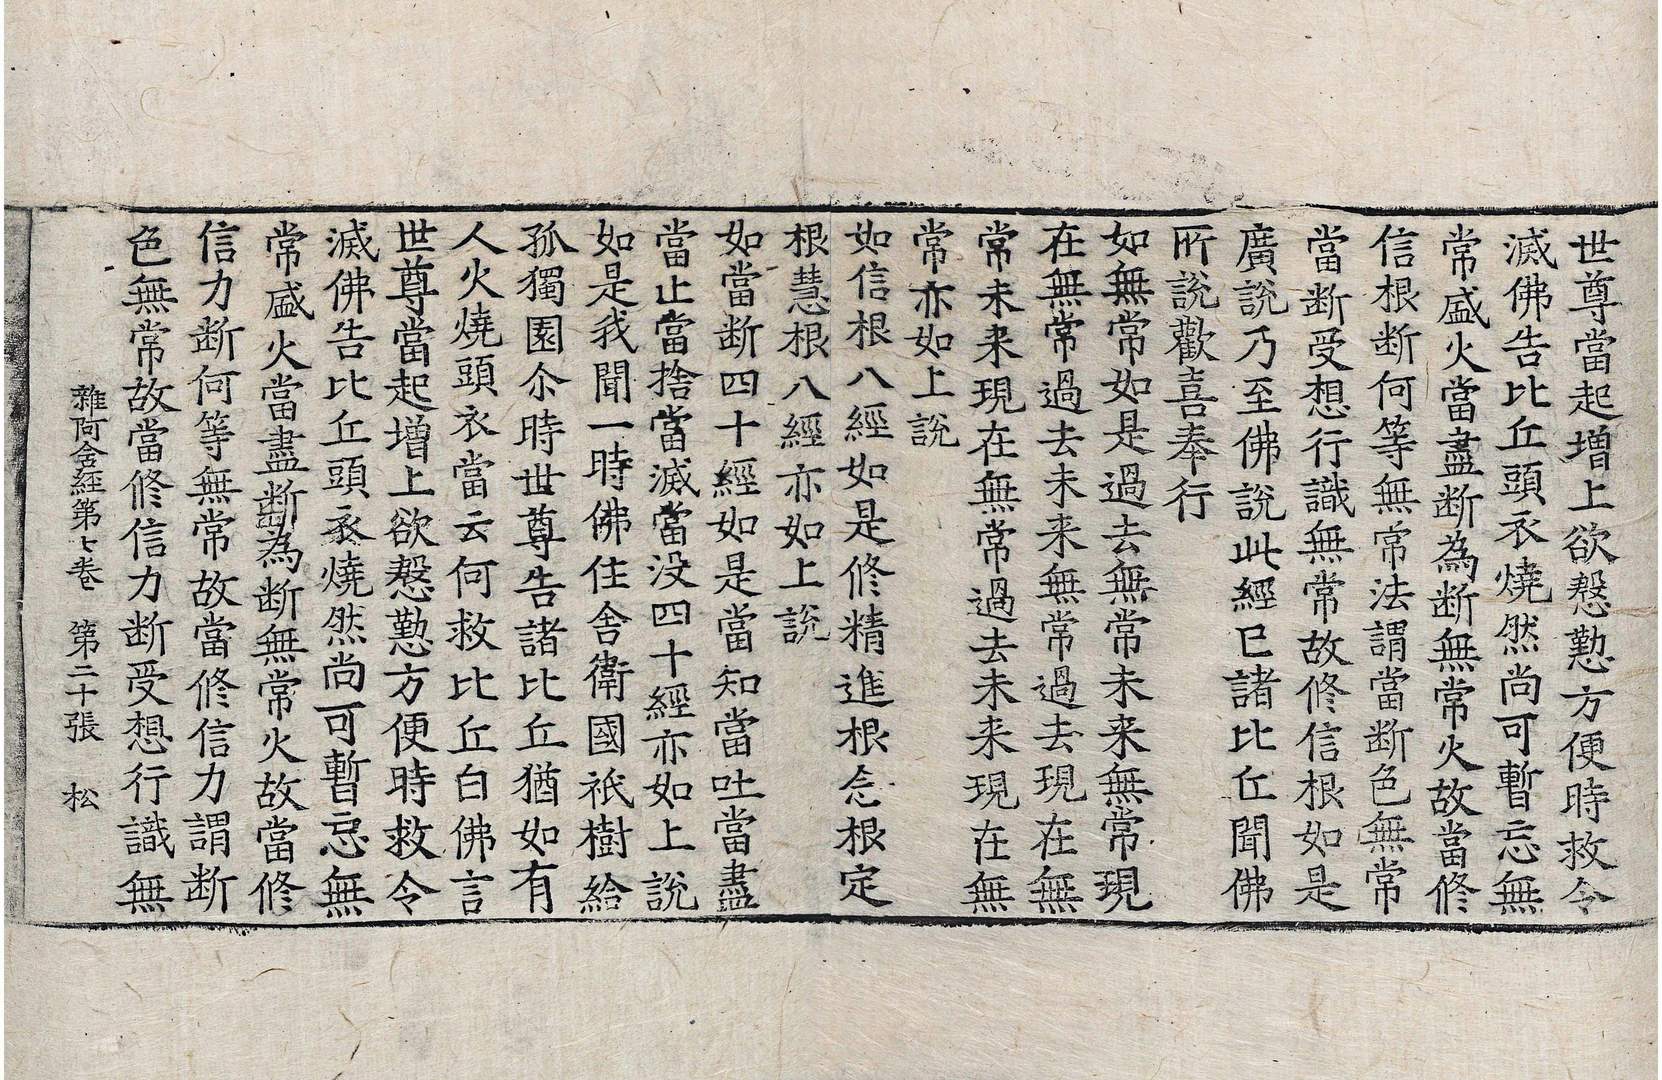 世尊當起増上欲慇懃方便時救令
滅佛告比丘頭衣燒然尚可暫忘無
常盛火當盡断為断無常火故當修
信根断何等無常法謂當断色無常
當断受想行識無常故修信根如是
廣說乃至佛說此經已諸比丘聞佛
所說歡喜奉行
如無常如是過去無常未来無常現
在無常過去未来無常過去現在無
常未来現在無常過去未来現在無
常亦如上說
如信根八經如是修精進根念根定
根慧根八經亦如上說
如當断四十經如是當知當吐當盡
當止當捨當滅當没四十經亦如上說
如是我聞一時佛住舍衛國祇樹給
孤獨園尒時世尊告諸比丘猶如有
人火燒頭衣當云何救比丘白佛言
世尊當起增上欲慇懃方便時救令
滅佛告比丘頭衣燒然尚可暫忌無
常盛火當盡断為断無常火故當修
信力断何等無常故當修信力謂断
色無常故當修信力断受想行識無
雜阿含經第七卷 第二十張 松